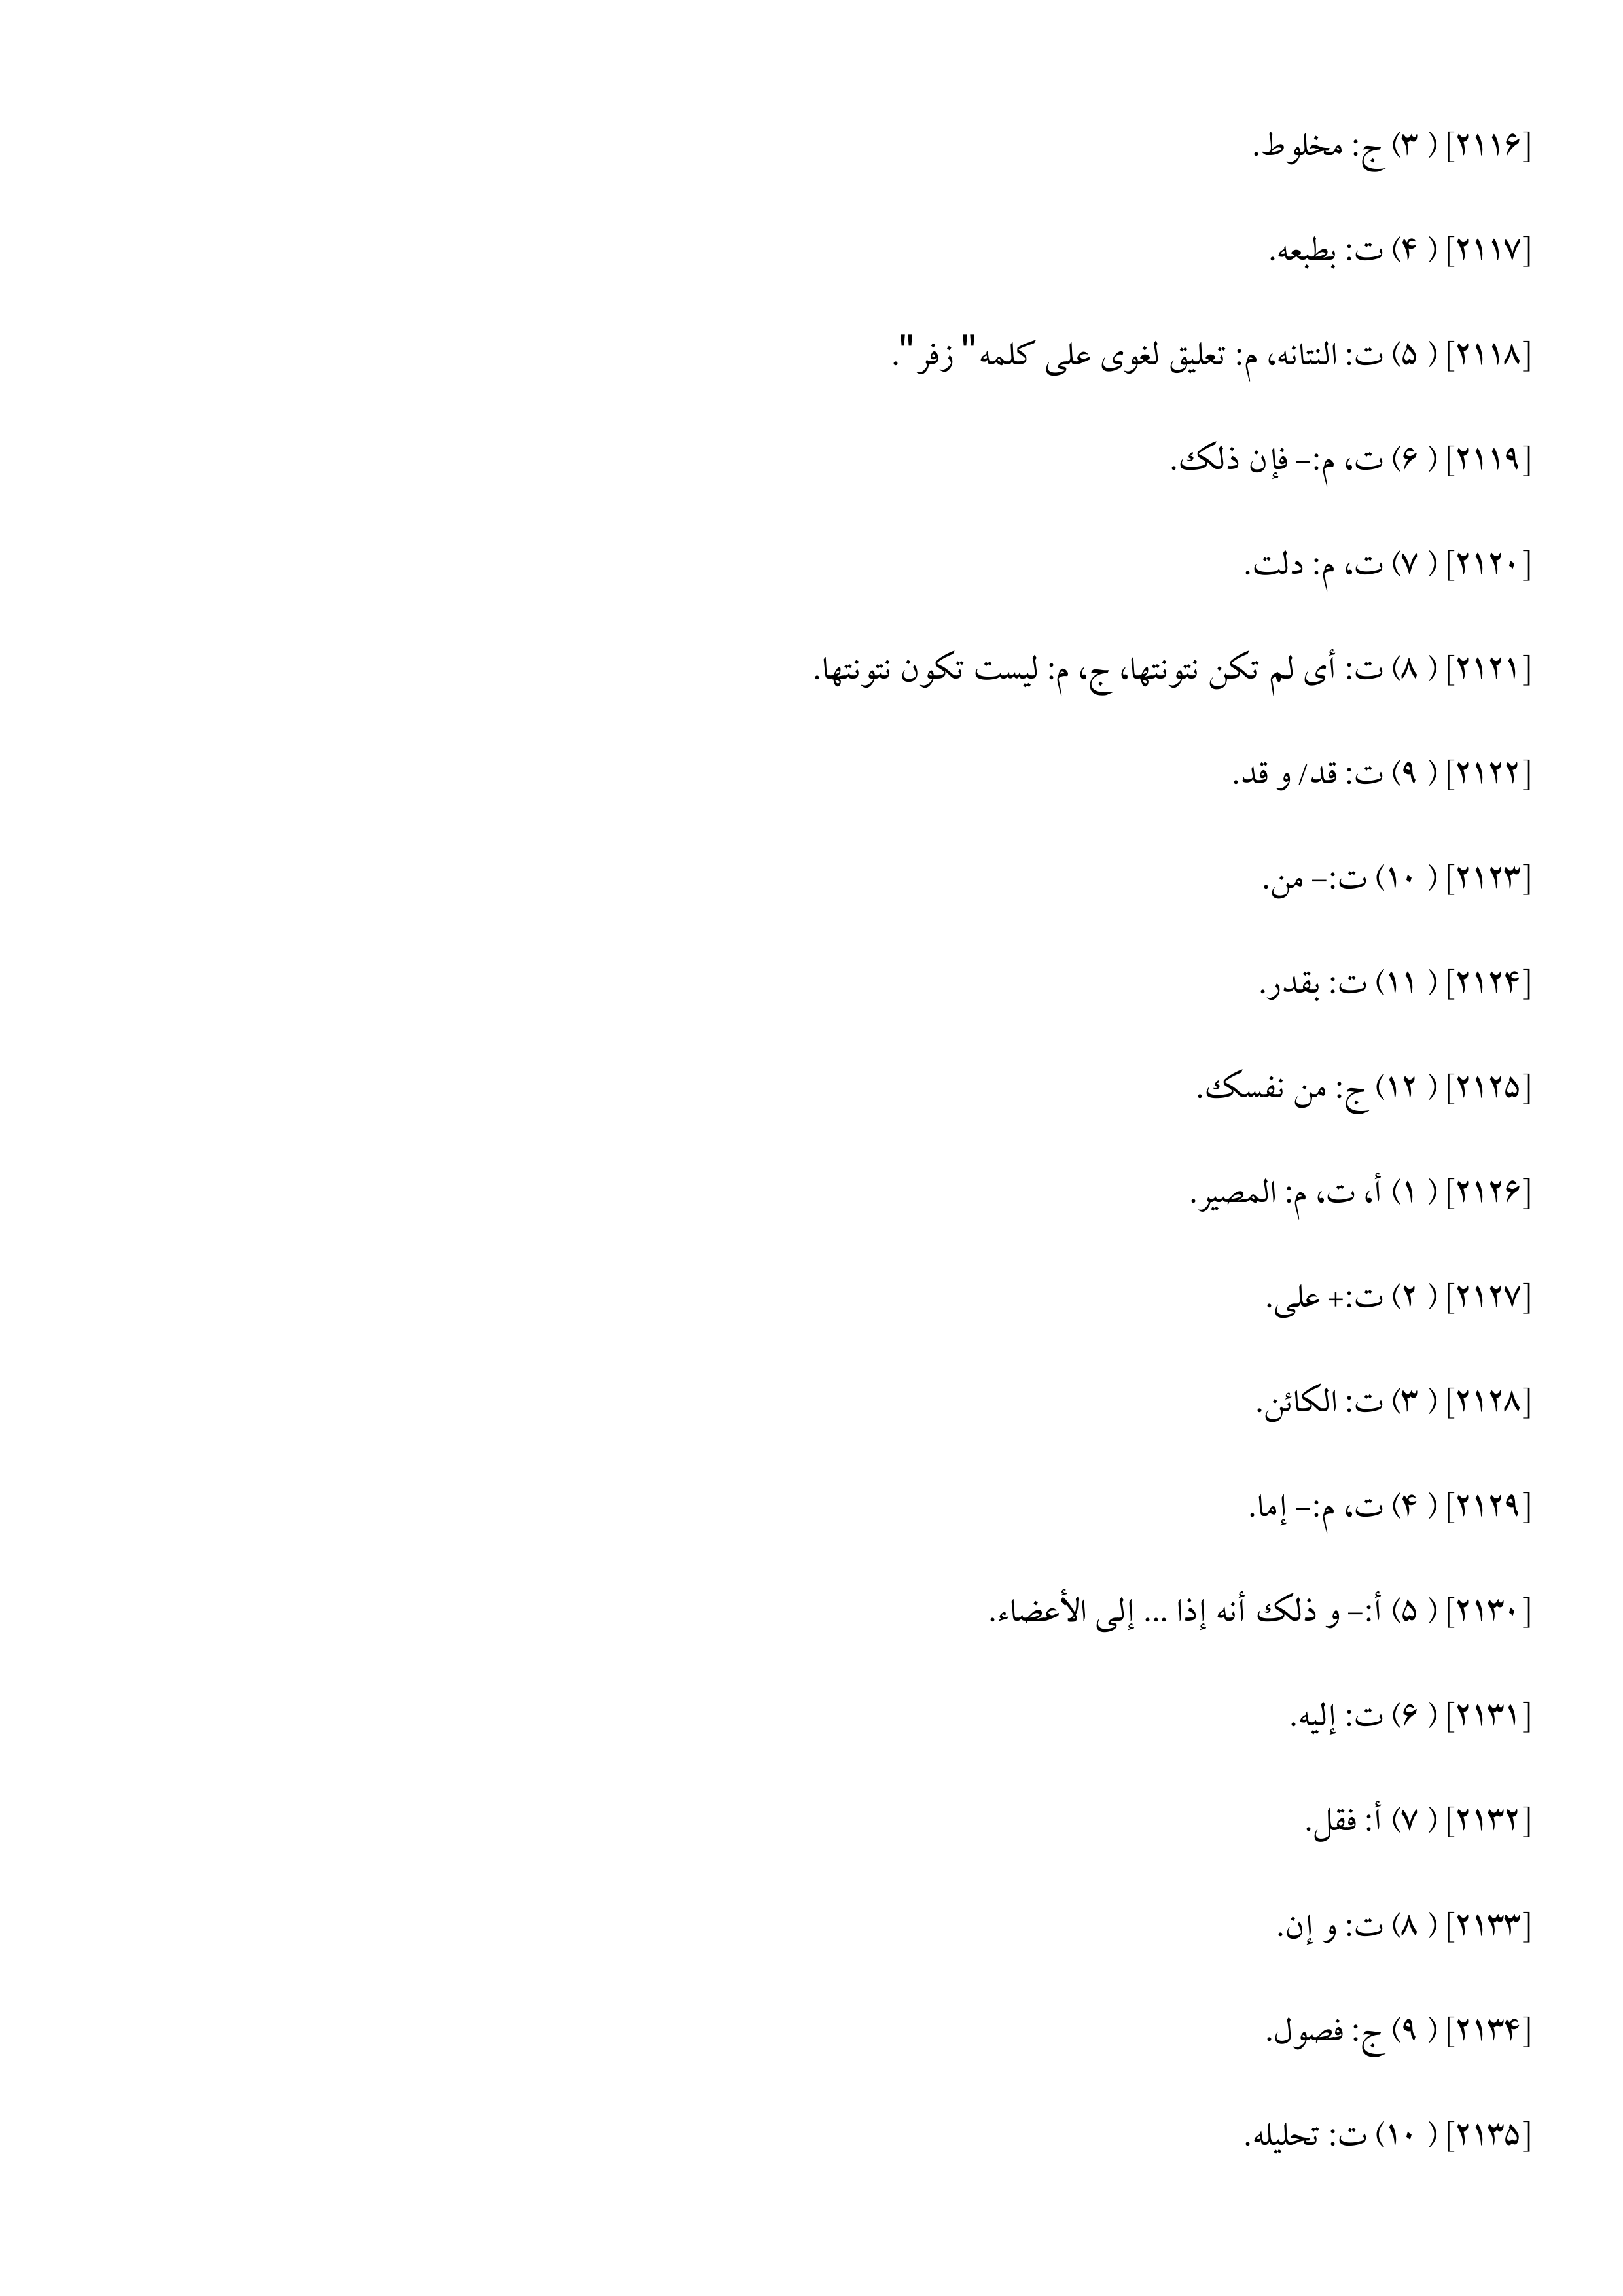 [۲۱۱۶] ( ۳) ج: مخلوط.
[۲۱۱۷] ( ۴) ت: بطبعه.
[۲۱۱۸] ( ۵) ت: النتانه، م: تعليق لغوى على كلمه" زفر".
[۲۱۱۹] ( ۶) ت، م:- فإن ذلك.
[۲۱۲۰] ( ۷) ت، م: دلت.
[۲۱۲۱] ( ۸) ت: أى لم تكن نتونتها، ج، م: ليست تكون نتونتها.
[۲۱۲۲] ( ۹) ت: قد/ و قد.
[۲۱۲۳] ( ۱۰) ت:- من.
[۲۱۲۴] ( ۱۱) ت: بقدر.
[۲۱۲۵] ( ۱۲) ج: من نفسك.
[۲۱۲۶] ( ۱) أ، ت، م: المصير.
[۲۱۲۷] ( ۲) ت:+ على.
[۲۱۲۸] ( ۳) ت: الكائن.
[۲۱۲۹] ( ۴) ت، م:- إما.
[۲۱۳۰] ( ۵) أ:- و ذلك أنه إذا ... إلى الأعضاء.
[۲۱۳۱] ( ۶) ت: إليه.
[۲۱۳۲] ( ۷) أ: فقل.
[۲۱۳۳] ( ۸) ت: و إن.
[۲۱۳۴] ( ۹) ج: فصول.
[۲۱۳۵] ( ۱۰) ت: تحليله.